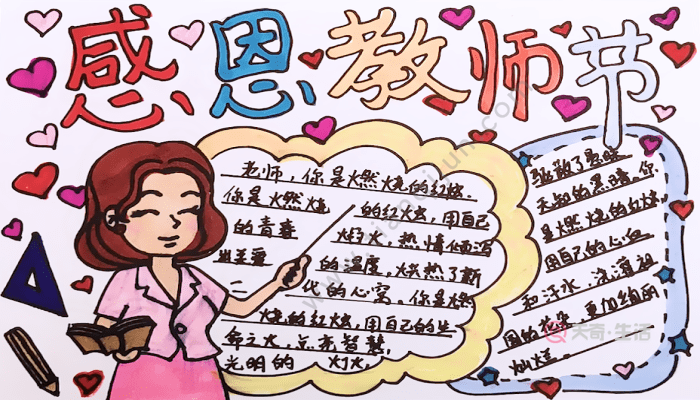 感恩教师节
老师，你是燃烧的红烛.
你是火燃烧 的红烛，用自己
的青春 灯火，热情倾泻
的温度，烘热了新
二 代的心灵。你是燃
烧的红烛，用自己的生
命之火，点亮智慧，
光明的 灯火，
驱散了愚昧
无知的黑暗，你
是燃烧的红烛，
用自己的心血
和汗水，浇灌祖
国的 更加绚丽，
灿烂。
天奇·生活